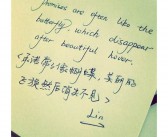 promises are often like the
butterfly, which disappear
after beautiful hover.
<承诺常常像蝴蝶,美丽的
飞换然后消失不见>
Lin